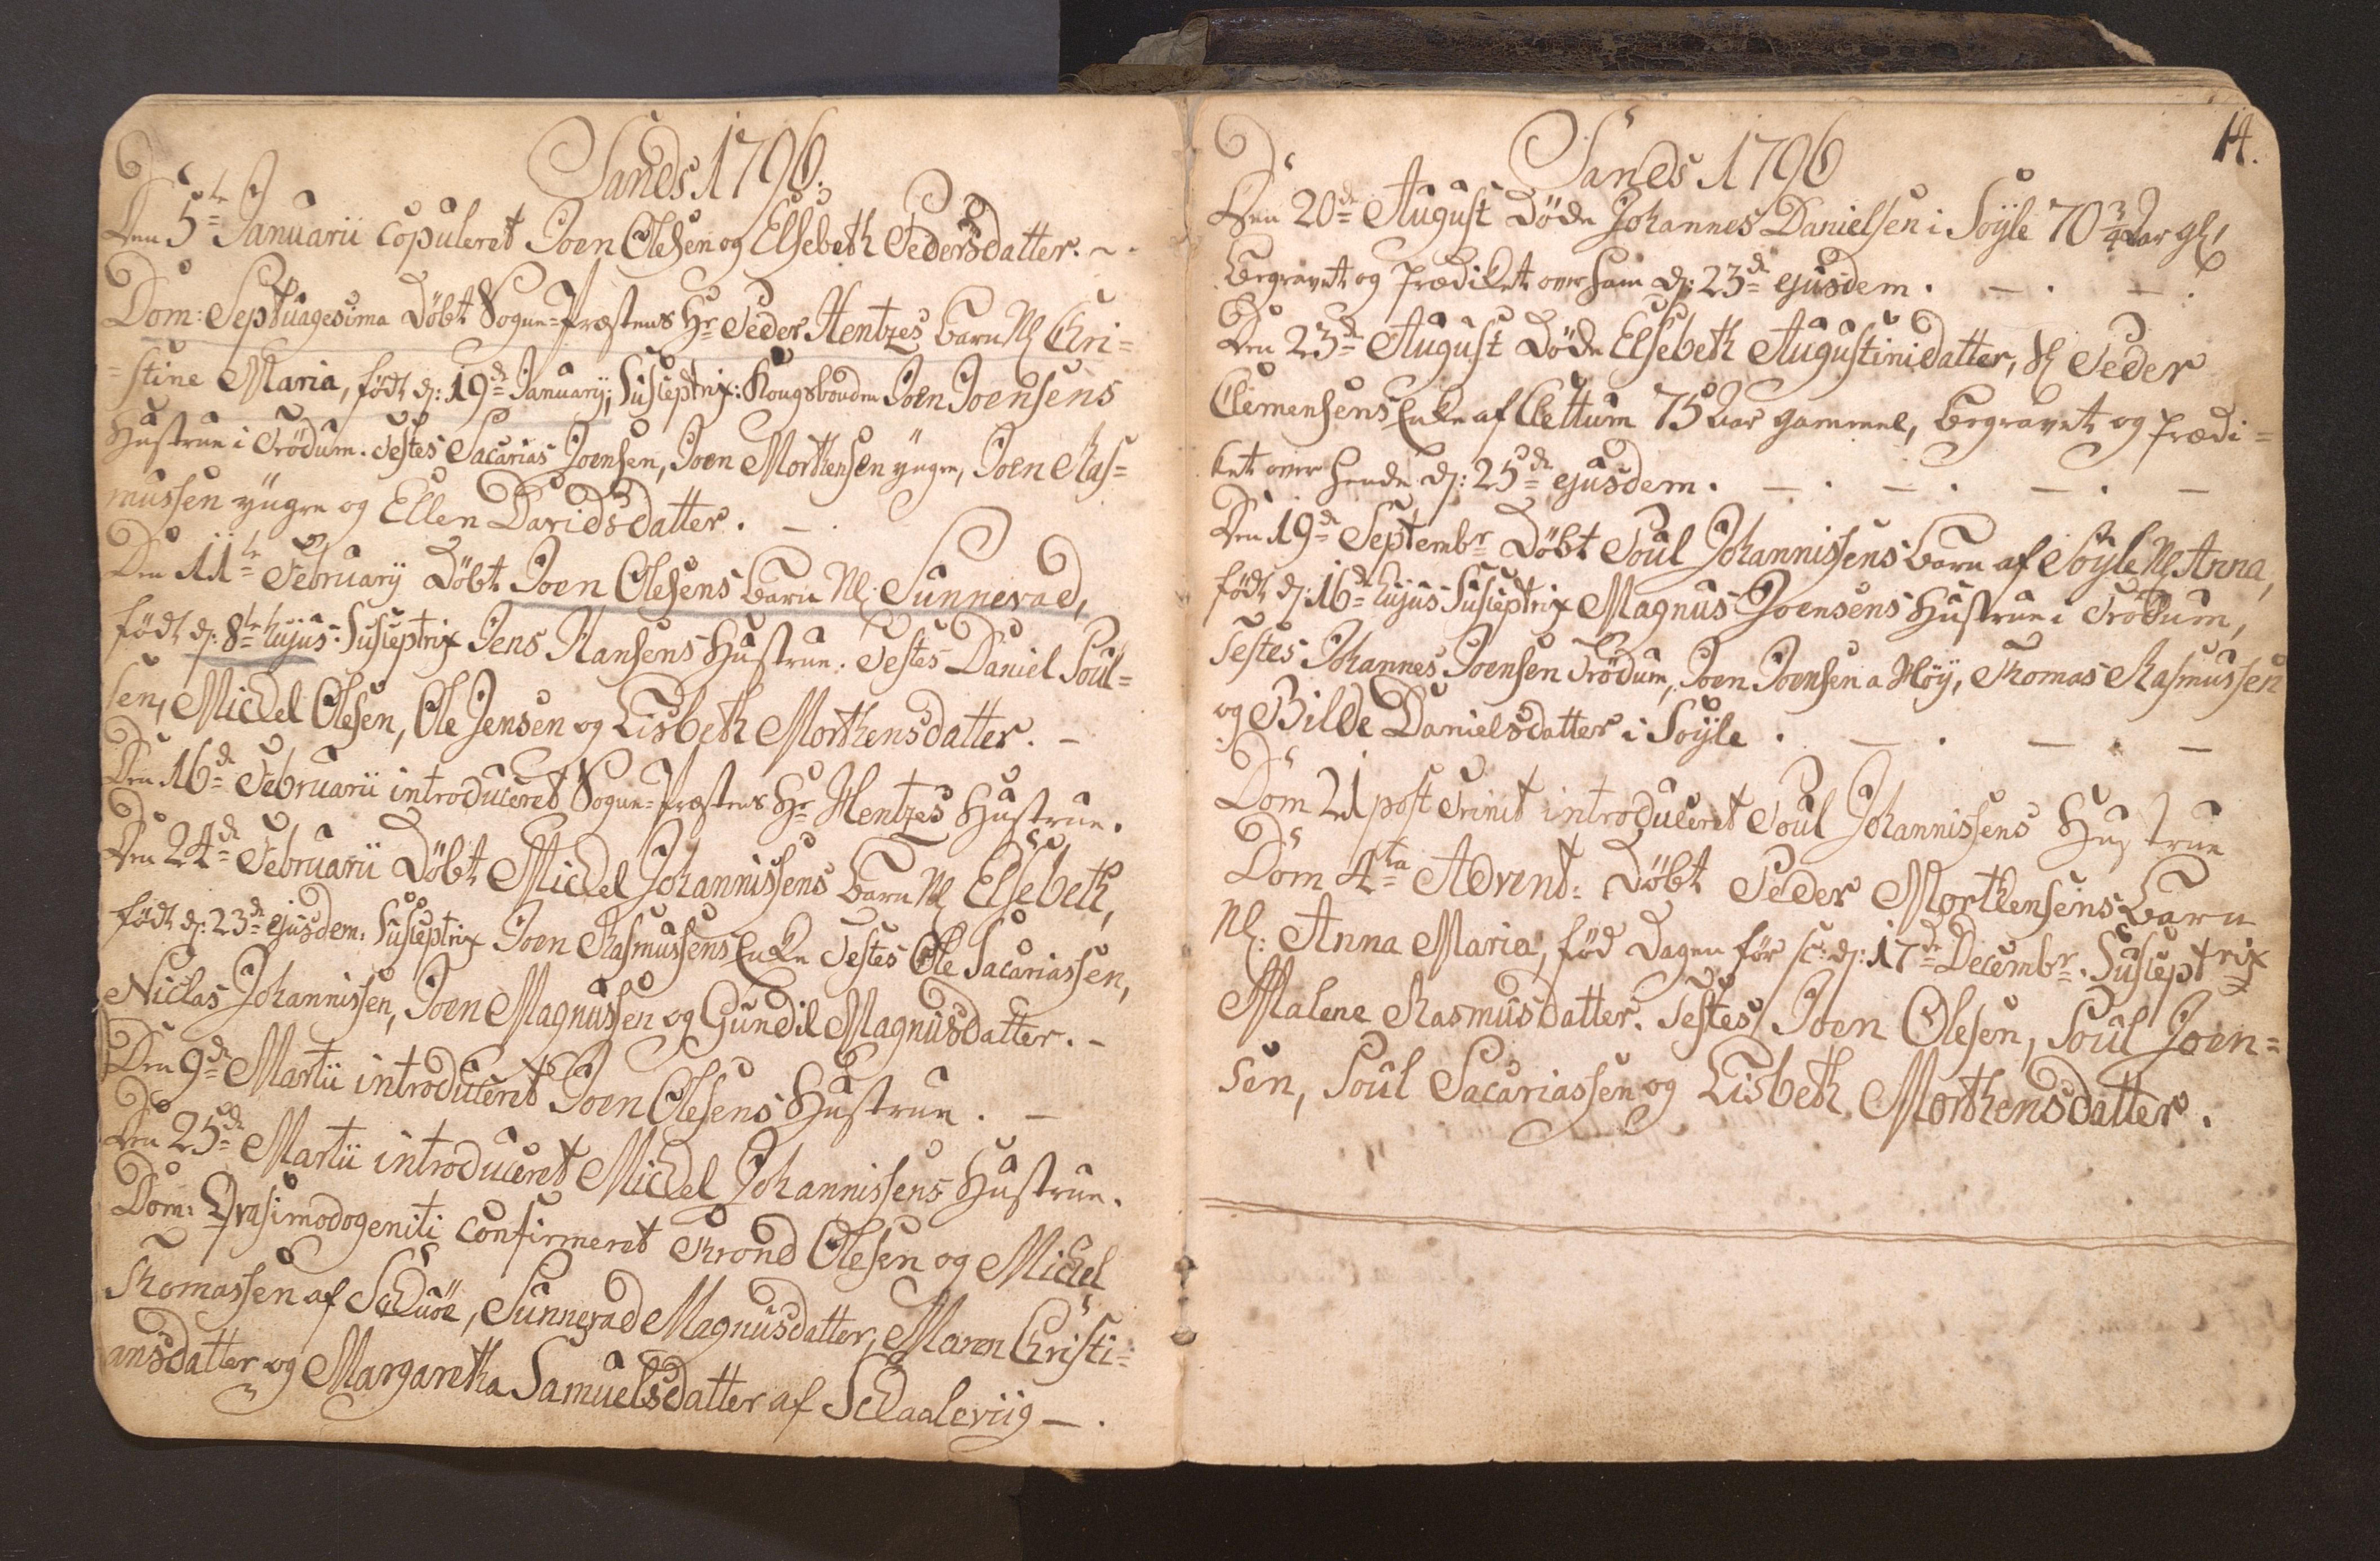 Sands 1796.
Den 5te Januarii copuleret Joen Olesen og Elsebeth Pedersdatter. ~ .
Dom: Septuagesima Döbt Sogne-Præstens Hr Peder Hentzes barn Nl Chri=
=stine Maria, født d: 19de Januarij; Susceptrix: Kongsbonden Joen Joensens
Hustrue i Trödum. Testes Sacarias Joensen, Joen Morthensen yngre, Joen Ras=
mussen yngre og Ellen Davidsdatter. — .
Den 11te Februarij Döbt Joen Olesens barn Nl: Sunnevad,
født d: 8de hujus: Susceptrix Jens Hansens Hustrue. Testes Daniel Poul=
sen, Michel Olesen, Ole Jensen og Lisbeth Morthensdatter. —
Den 16de Februarii introduceret Sogne-Præstens Hr Hentzes Hustrue.
Den 24de Februarii Döbt Michel Johannissens barn Nl Elsebeth,
født d: 23de ejusdem. Susceptrix Joen Rasmussens Enke Testes Ole Sacariassen,
Niclas Johannissen, Joen Magnussen og Gundil Magnusdatter. -
Den 9de Martii introduceret Joen Olesens Hustrue. —
Den 25de Martii introduceret Michel Johannissens Hustrue.
Dom: Qvasimodogeniti confirmeret Trond Olesen og Michel
Thomassen af Schuöe, Sunnevad Magnusdatter, Maren Christi=
ansdatter og Margaretha Samuelsdatter af Schaaleviig — .
14.
Sands 1796
Den 20de August Døde Johannes Danielsen i Söyle 70 3/4 Aar gl,
begravet og Prædiket over ham d: 23de ejusdem. — . — .
Den 23de August Døde Elsebeth Augustinidatter, Sl Peder
Clemensens Enke af Clettum 75 Aar gammel, begravet og Prædi=
ket over hende d: 25de ejusdem. — . — . — . —
Den 19de Septembr Döbt Poul Johannissens barn af Söyle Nl Anna,
født d: 16de hujus Susceptrix Magnus Joensens Hustrue i Trödum,
Testes Johannes Joensen Trödum, Joen Joensen a Höy, Thomas Rasmussen
og Bilde Danielsdatter i Söyle . — . — . —
Dom 21 post Trinit introduceret Poul Johannissens Hustrue
Dom 4ta Advent: Döbt Peder Morthensens barn
Nl: Anna Maria, fød Dagen før sc: d: 17de Decembr. Susceptrix
Malene Rasmusdatter. Testes Joen Olesen, Poul Joen=
sen, Poul Sacariassen og Lisbeth Morthensdatter.